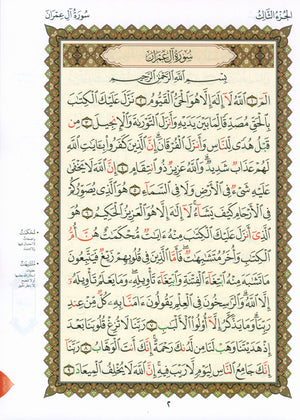 الجزء الثالث
سورة آل عمران
سورة آل عمران
بسم الله الرحمن الرحيم
الم ۝ الله لا إله إلا هو الحي القيوم ۝ نزل عليك الكتب
بالحق مصدقا لما بين يديه وأنزل التورىة والإنجيل ۝ من
قبل هدى للناس وأنزل الفرقان إن الذين كفروا بـايت الله
لهم عذاب شديد والله عزيز ذو انتقام ۝ إن الله لا يخفى
عليه شىء فى الأرض ولا فى السماء ۝ هو الذى يصوركم
فى الأرحام كيف يشاء لا إله إلا هو العزيز الحكيم ۝ هو
الذى أنزل عليك الكتب منه ءايت محكمت هن أم
الكتب وأخر متشبهت فأما الذين فى قلوبهم زيغ فيتبعون
ما تشبه منه ابتغاء الفتنة وابتغاء تأويله وما يعلم تأويله
إلا الله والرسخون فى العلم يقولون ءامنا به كل من عند
ربنا وما يذكر إلا أولوا الألبب ۝ ربنا لا تزغ قلوبنا بعد
إذ هديتنا وهب لنا من لدنك رحمة إنك أنت الوهاب ۝ ربنا
إنك جامع الناس ليوم لا ريب فيه إن الله لا يخلف الميعاد ۝
٢